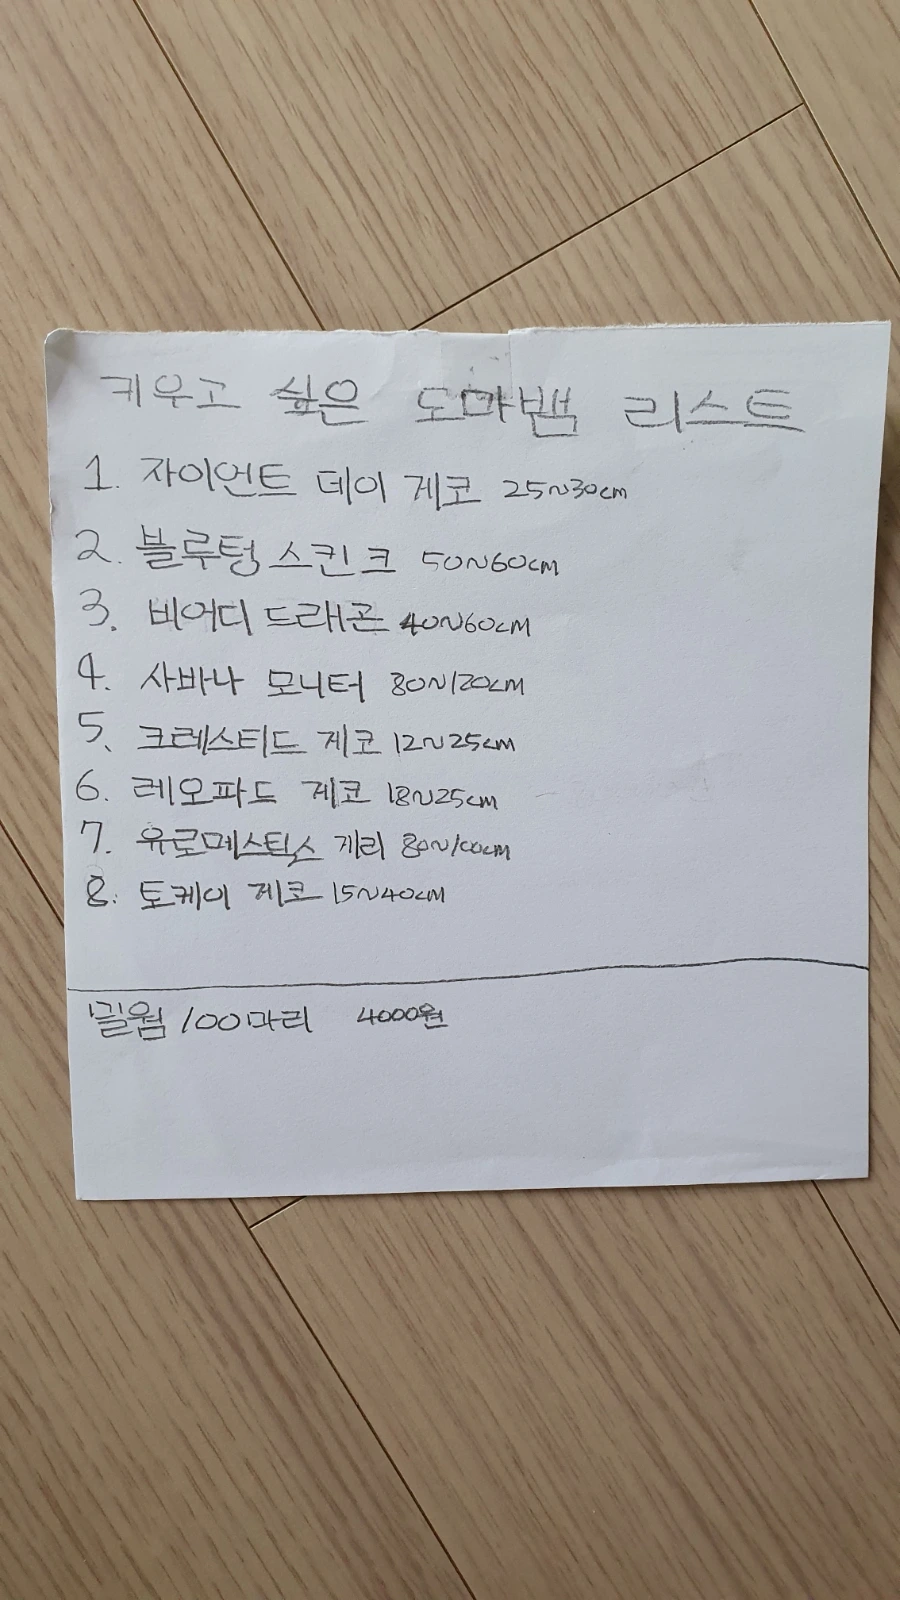 키우고 싶은 도마뱀 리스트
1. 자이언트 데이 게코 25~30cm
2. 블루텅 스킨크 50~60cm
3. 비어디 드래곤 40~60cm
4. 사바나 모니터 80~120cm
5. 크레스티드 게코 12~25cm
6. 레오파드 게코 18~25cm
7. 유로메스틱스 게리 80~100cm
8. 토케이 게코 15~40cm
밀웜 100마리 4000원